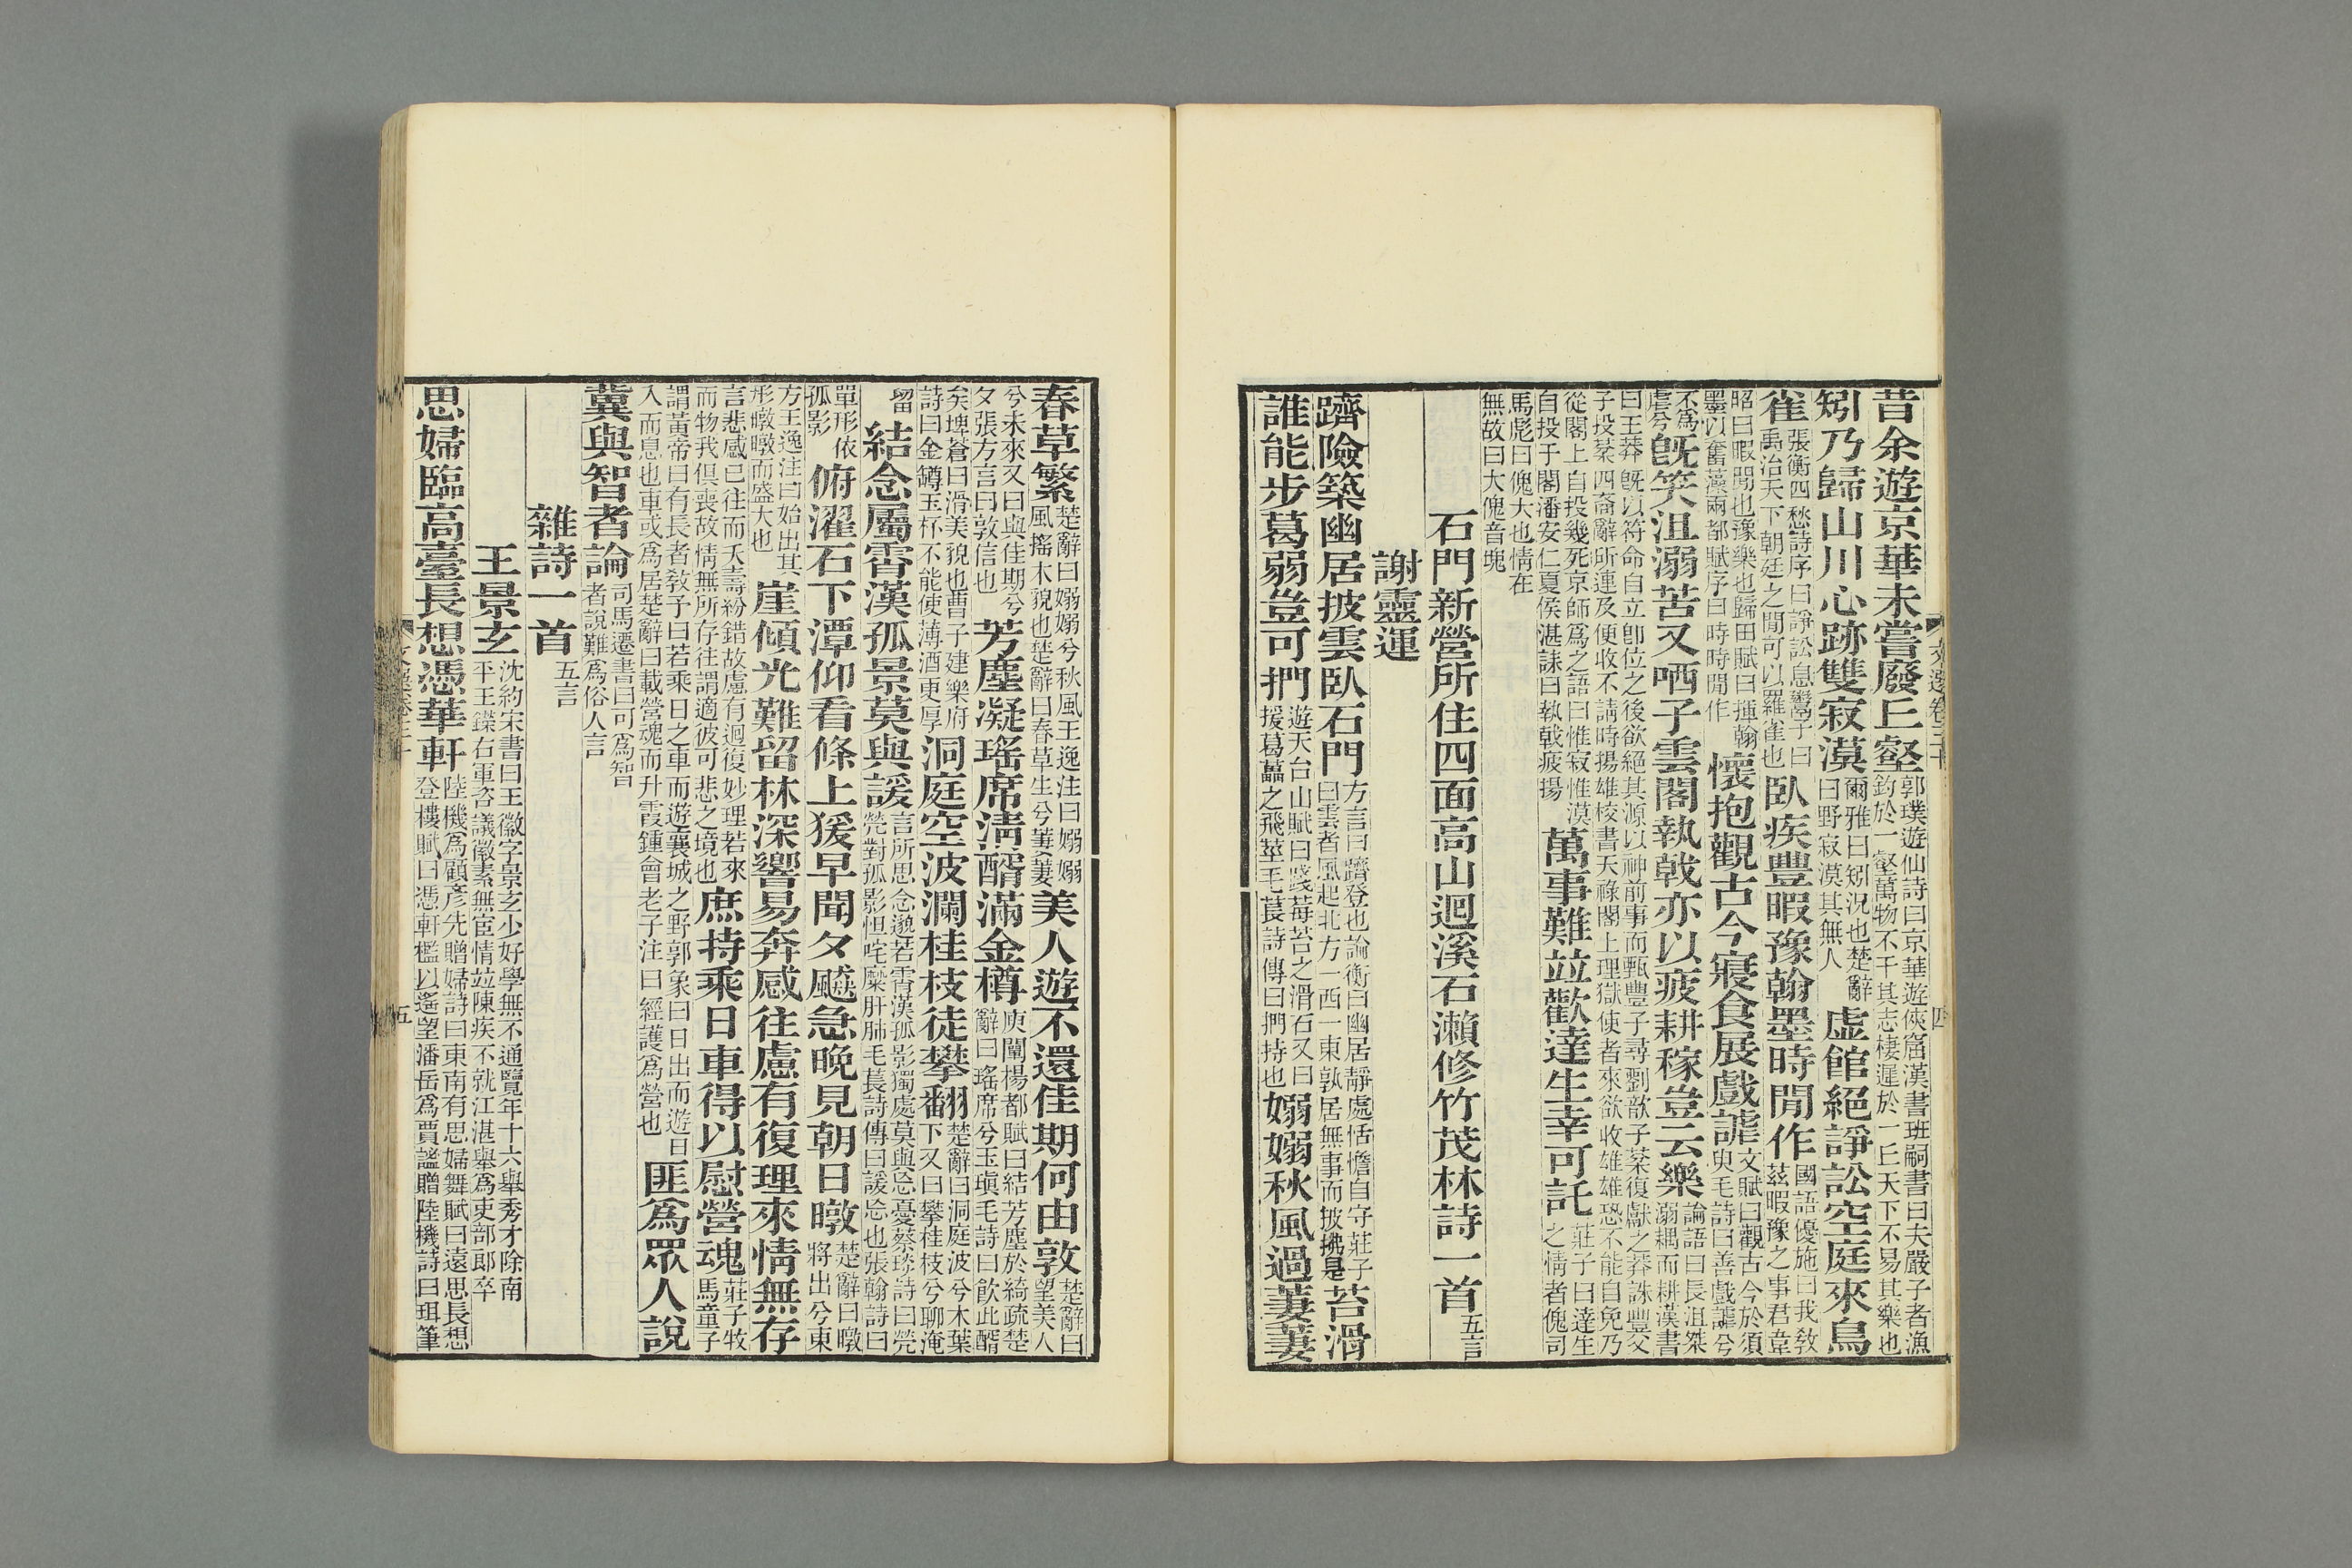 文選卷三十
四
昔余遊京華未嘗廢丘壑郭璞遊仙詩曰京華遊俠窟漢書班嗣書曰夫嚴子者漁釣於一壑萬物不干其志棲遲於一丘天下不易其樂也
矧乃歸山川心跡雙寂漠爾雅曰矧況也楚辭曰野寂漠其無人虛館絕諍訟空庭來鳥
雀張衡四愁詩序曰諍訟息鬻子曰禹治天下朝廷之閒可以羅雀也臥疾豐暇豫翰墨時閒作國語優施曰我敎茲暇豫之事君韋
昭曰暇閒也豫樂也歸田賦曰揮翰墨以奮藻兩都賦序曰時時閒作懷抱觀古今寢食展戲謔文賦曰觀古今於須臾毛詩曰善戲謔兮
不爲虐兮旣笑沮溺苦又哂子雲閣執戟亦以疲耕稼豈云樂論語曰長沮桀溺耦而耕漢書
曰王莽旣以符命自立卽位之後欲絕其源以神前事而甄豐子尋劉歆子棻復獻之莽誅豐父子投棻四裔辭所連及便收不請時揚雄校書天祿閣上理獄使者來欲收雄雄恐不能自免乃
從閣上自投幾死京師爲之語曰惟寂惟漠自投于閣潘安仁夏侯湛誄曰執戟疲揚萬事難竝歡達生幸可託莊子曰達生之情者傀司
馬彪曰傀大也情在無故曰大傀音瑰
石門新營所住四面高山迴溪石瀨修竹茂林詩一首五言
謝靈運
躋險築幽居披雲臥石門方言曰躋登也論衡曰幽居靜處恬憺自守莊子曰雲者風起北方一西一東孰居無事而披拂是苔滑
誰能步葛弱豈可捫遊天台山賦曰踐莓苔之滑石又曰援葛藟之飛莖毛萇詩傳曰捫持也嫋嫋秋風過萋萋
春草繁楚辭曰嫋嫋兮秋風王逸注曰嫋嫋風搖木貌也楚辭曰春草生兮萋萋美人遊不還佳期何由敦楚辭曰望美人
兮未來又曰與佳期兮夕張方言曰敦信也芳塵凝瑤席淸醑滿金樽庾闡楊都賦曰結芳塵於綺疏楚辭曰瑤席兮玉瑱毛詩曰飮此醑
矣埤蒼曰湑美貌也曹子建樂府詩曰金罇玉杯不能使薄酒更厚洞庭空波瀾桂枝徒攀翻楚辭曰洞庭波兮木葉下又曰攀桂枝兮聊淹
留結念屬霄漢孤景莫與諼言所思念邈若霄漢孤影獨處莫與忘憂蔡琰詩曰煢煢對孤影怛咤糜肝肺毛萇詩傳曰諼忘也張翰詩曰
單形依孤影俯濯石下潭仰看條上猨早聞夕飈急晚見朝日暾楚辭曰暾將出兮東
方王逸注曰始出其形暾暾而盛大也崖傾光難留林深響易奔感往慮有復理來情無存
言悲感已往而夭壽紛錯故慮有迴復妙理若來而物我俱喪故情無所存往謂適彼可悲之境也庶持乘日車得以慰營魂莊子牧馬童子
謂黃帝曰有長者敎予曰若乘日之車而遊襄城之野郭象曰日出而遊日入而息也車或爲居楚辭曰載營魂而升霞鍾會老子注曰經護爲營也匪爲眾人說
冀與智者論司馬遷書曰可爲智者說難爲俗人言
雜詩一首五言
王景玄沈約宋書曰王徽字景玄少好學無不通覽年十六舉秀才除南平王鑠右軍咨議徽素無宦情竝陳疾不就江湛舉爲吏部郎卒
思婦臨高臺長想憑華軒陸機爲顧彥先贈婦詩曰東南有思婦舞賦曰遠思長想登樓賦曰憑軒檻以遙望潘岳爲賈謐贈陸機詩曰珥筆
五